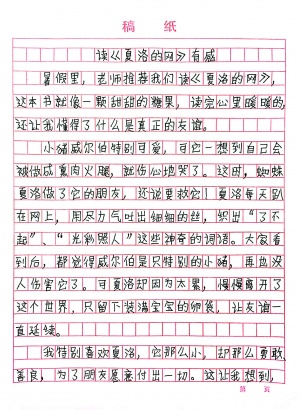 稿 纸
读《夏洛的网》有感
暑假里，老师推荐我们读《夏洛的网》，
这本书就像一颗甜甜的糖果，读完心里暖暖的，
还让我懂得了什么是真正的友谊。
小猪威尔伯特别可爱，可它一想到自己会
被做成熏肉火腿，就伤心地哭了。这时，蜘蛛
夏洛做了它的朋友，还说要救它！夏洛每天趴
在网上，用尽力气吐出细细的丝，织出“了不
起”、“光彩照人”这些神奇的词语。大家看
到后，都说得威尔伯是只特别的小猪，再也没
人伤害它了。可夏洛却因为太累，慢慢离开了
这个世界，只留下装满宝宝的卵袋，让友谊一
直延续。
我特别喜欢夏洛，它那么小，却那么勇敢
善良，为了朋友愿意付出一切。这让我想到，
第 页